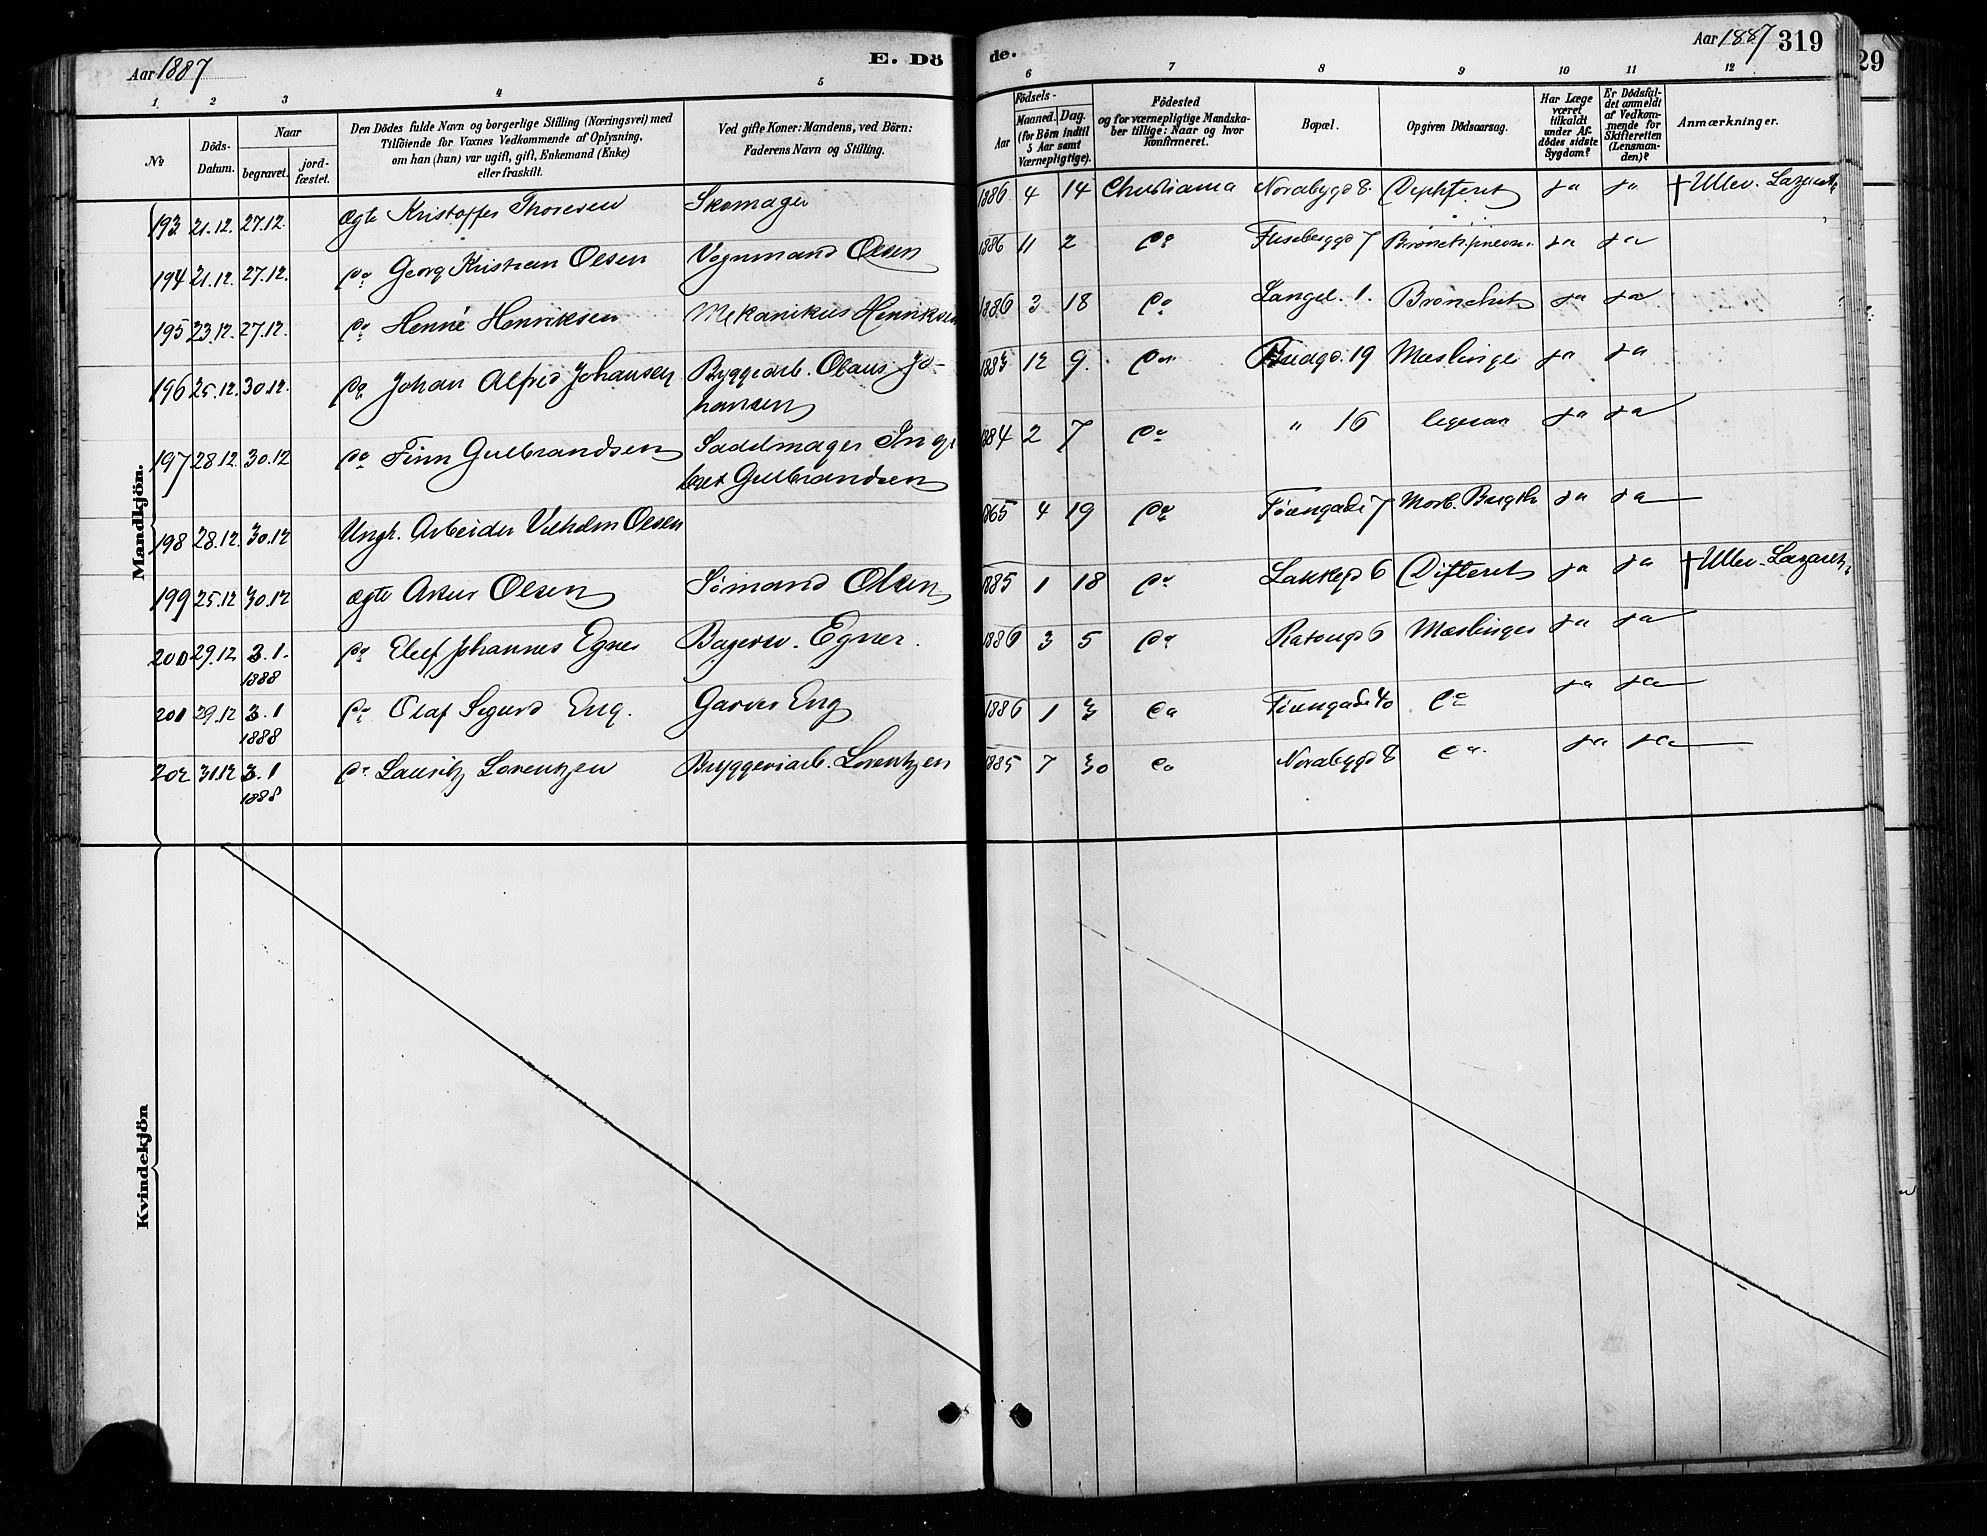 Aar 1887
E. Dö
de.
Aar 1887 319
29
1 2 3 4 5 6 7 8 9 10 11 12
No
Döds-Datum.
Naar
begravet.
jord-fæstet.
Den Dödes fulde Navn og borgerlige Stilling (Næringsvei) med
Tilföiende for Voxnes Vedkommende af Oplysning,
om han (hun) var ugift, gift, Enkemand (Enke)
eller fraskilt.
Ved gifte Koner: Mandens, ved Börn:
Faderens Navn og Stilling.
Födsels-
Aar
Maaned. Dag.
(for Börn indtil
5 Aar samt
Værnepligtige).
Födested
og for værnepligtige Mandska-
ber tillige: Naar og hvor
konfirmeret.
Bopæl.
Opgiven Dödsaarsag.
Har Læge
været
tilkaldt
under Af-
dödes sidste
Sygdom?
Er Dödsfal-
det anmeldt
af Vedkom-
mende for
Skifteretten
(Lensman-
den)?
Anmærkninger.
Mandkjön.
193 21.12. 27.12. ægte Kristoffer Thoresen Skomager 1886 4 14 Christiania Nordbygd 8 Diphterit ja ja † Ullev. Lazareth
194 21.12. 27.12. Do Georg Kristian Olsen Vognmand Olsen 1886 11 2 Do 7 ja ja
195 23.12. 27.12. Do Henrik Henriksen Mekanikus Henriksen 1886 3 18 Do Langel. 1. Bronchit ja ja
196 25.12. 30.12. Do Johan Alfred Johansen Byggearb. Olaus Jo-
hansen 1883 12 9. Do 19 Mæslinger ja ja
197 28.12. 30.12 Do Finn Gulbrandsen Sadelmager Inge
bret Gulbrandsen 1884 2 7 Do " 16 ligesaa ja ja
198 28.12. 30.12 Ungk. Arbeider Vilhelm Olsen 1865 4 19 Do Tøiengade 7 Morb. ja ja
199 25.12 30.12 ægte Olsen Sømand Olsen 1885 1 18 Do Lakkegd 6 Difterit ja ja † Ullev. Lazareth
200 29.12 3.1.
1888 Do Johannes Egner Bagersv. Egner. 1886 3 5 Do 6 Mæslinger ja ja
201 29.12 3.1
1888 Do Olaf Sigurd Eng. Garver Eng 1886 1 3 Do Tøiengade 40 Do ja ja
202 31.12 3.1
1888 Do Lauritz Lorentzen Bryggeriarb. Lorentzen 1885 7 30 Do Nordbygd 8 Do. ja ja
Kvindekjön